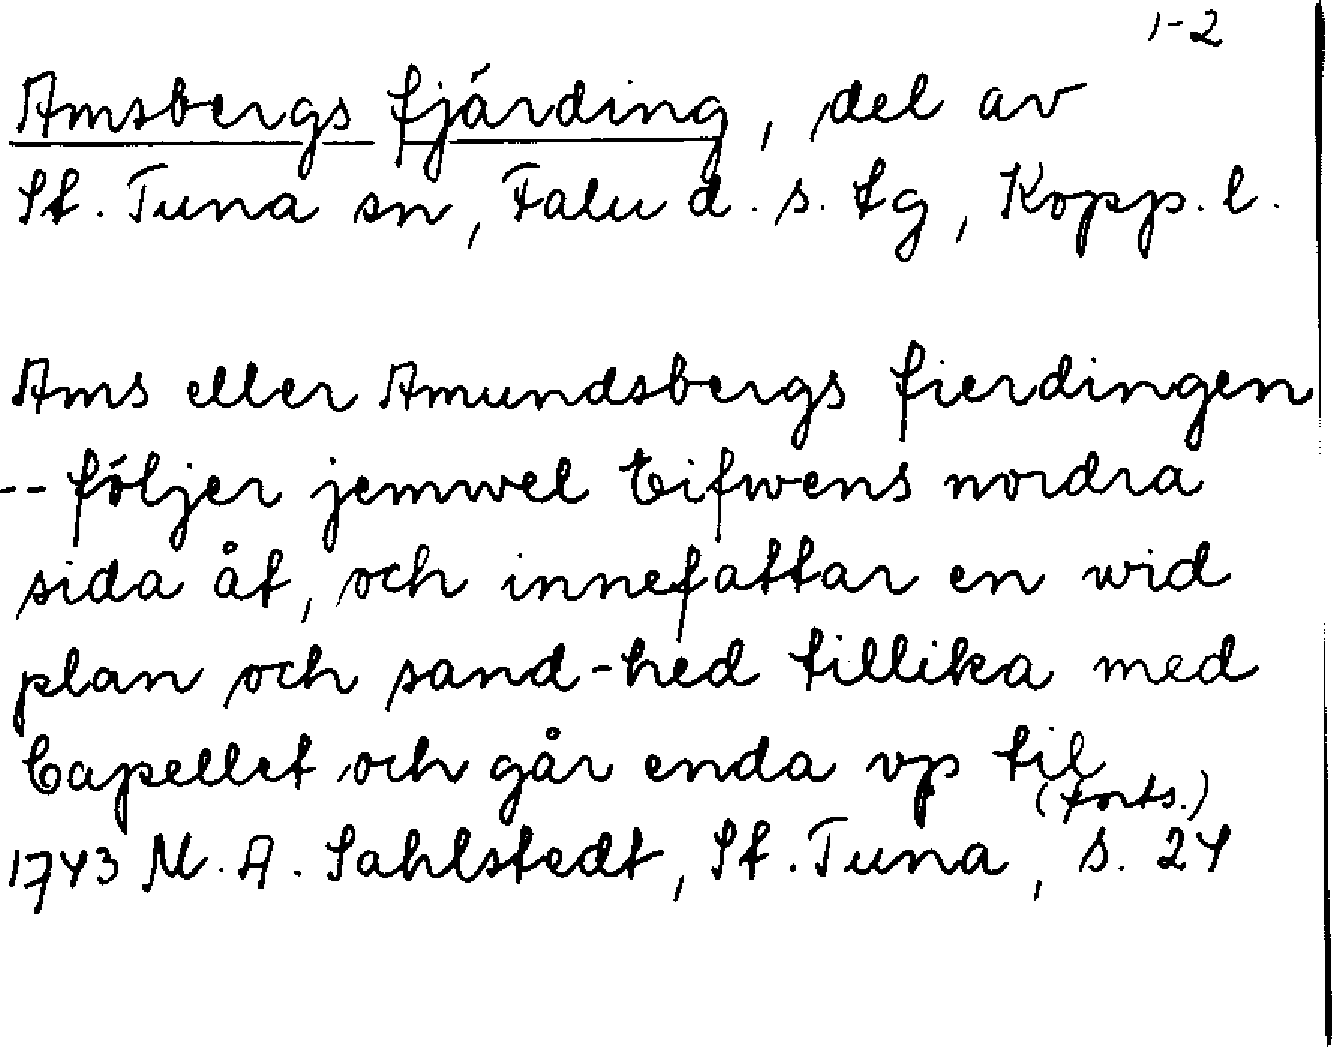 1-2
Amsbergs fjärding, del av
St. Tuna sn, Falu d. s. tg, Kopp. l.
Ams eller Amundsbergs fierdingen
-- följer jemwel Elfwens nordra
sida åt, och innefattar en wid
plan och sand-hed tillika med
Capellet och går enda vp til
(Forts.)
1743 M. A. Sahlstedt, St. Tuna, s. 24